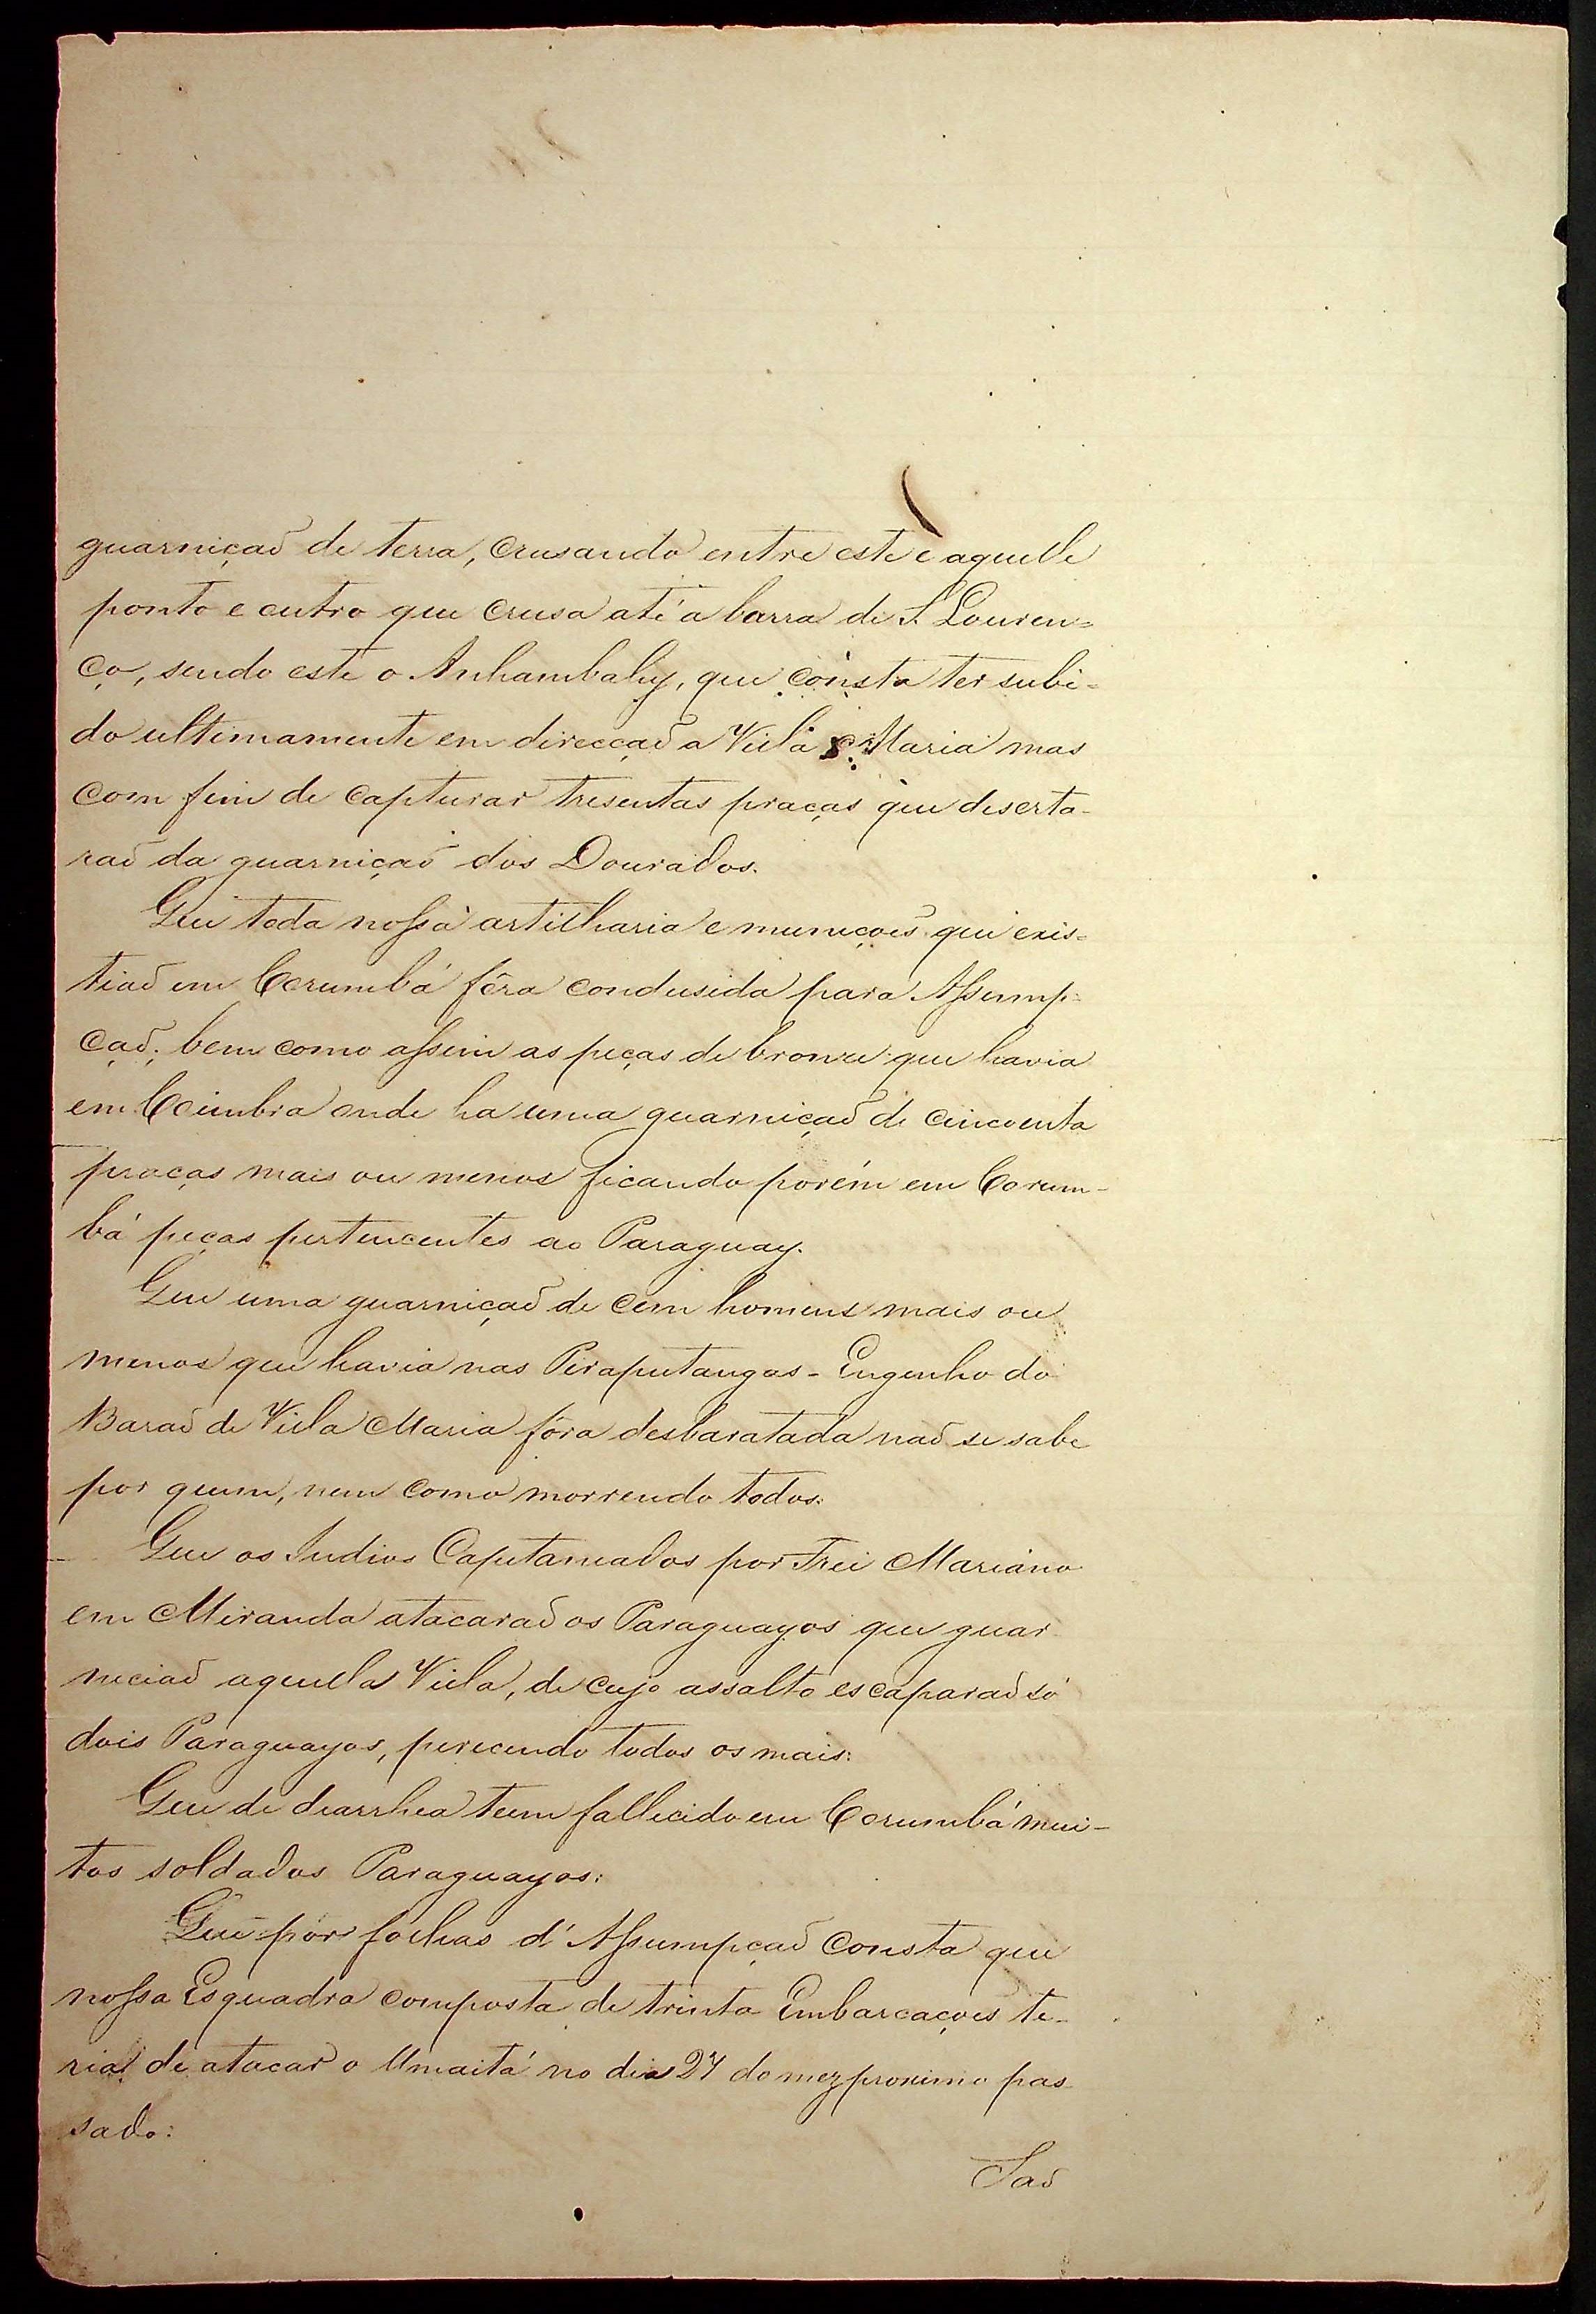 guarnição de terra, crusando entre este e aquelle
ponto e outro que crusa até a barra de S. Louren=
ço, sendo este o Anhambahy, que consta ter subi=
do ultimamente em direcção a Villa Maria mas
com fim de capturar tresentas praças que deserta-
raõ da guarniçaõ dos Dourados.
Que toda nossa artilharia e muniçoẽs que exis=
tiaõ em Corumbá fôra condusida para Assump=
çaõ; bem como assim as peças de bronze que havia
em Coimbra onde ha uma guarniçaõ de cincoenta
praças mais ou menos ficando porém em Corum-
bá peças pertencentes ao Paraguay.
Que uma guarniçaõ de cem homens mais ou
menos que havia nas Piraputangas - Engenho do
Baraõ de Villa Maria fôra desbaratada naõ se sabe
por quem, nem como morrendo todos:
Que os Indios Capitaneados por Frei Mariano
em Miranda atacaraõ os Paraguayos que guar-
neciaõ aquella Villa, de cujo assalto escaparaõ só
dois Paraguayos, perecendo todos os mais:
Que de diarrhea teem fallecido em Corumbá mui-
tos soldados Paraguayos:
Que por folhas d'Assumpçaõ consta que
nossa Esquadra composta de trinta Embarcaçoẽs te-
ria de atacar o Umaitá no dia 27 do mez proximo pas-
sado:
Saõ